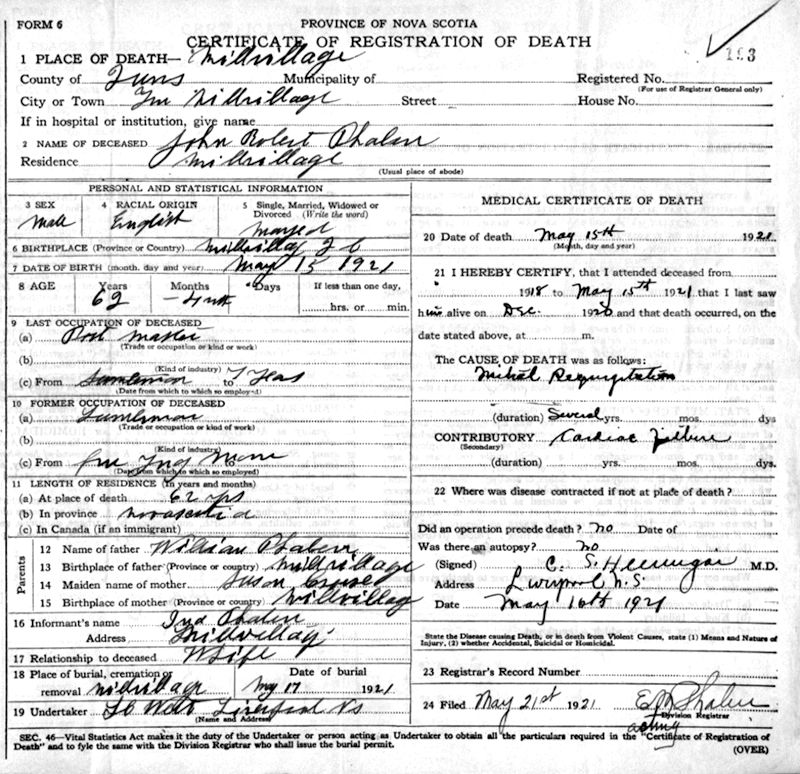 FORM 6
PROVINCE OF NOVA SCOTIA
CERTIFICATE OF REGISTRATION OF DEATH
193
1 PLACE OF DEATH— Millvillage
County of Municipality of Registered No.
(For use of Registrar General only)
City or Town Millvillage Street House No.
If in hospital or institution, give name
2 NAME OF DECEASED John Robert Phalen
Residence Millvillage
(Usual place of abode)
PERSONAL AND STATISTICAL INFORMATION
3 SEX 4 RACIAL ORIGIN 5 Single, Married, Widowed or Divorced (Write the word)
Male English
6 BIRTHPLACE (Province or Country) Millvillag
7 DATE OF BIRTH (month, day and year) May 15 1921
8 AGE Years Months Days If less than one day,
62 hrs. or min.
9 LAST OCCUPATION OF DECEASED
(a) Post master
(Trade or occupation or kind or work)
(b)
(Kind of industry)
(c) From to
(Date from which to which so employed)
10 FORMER OCCUPATION OF DECEASED
(a)
(Trade or occupation or kind of work)
(b)
(Kind of industry)
(c) From
(Date from which to which so employed)
11 LENGTH OF RESIDENCE (In years and months)
(a) At place of death 62 yrs
(b) In province novascotia
(c) In Canada (if an immigrant)
Parents
12 Name of father William Phalen
13 Birthplace of father (Province or country) Millvillage
14 Maiden name of mother Susan
15 Birthplace of mother (Province or country) Millvillage
16 Informant's name Phalen
Address Millvillag
17 Relationship to deceased Wife
18 Place of burial, cremation or removal Millvillage Date of burial May 17 1921
19 Undertaker Liverpool NS
(Name and Address)
MEDICAL CERTIFICATE OF DEATH
20 Date of death May 15th 1921
(Month, day and year)
21 I HEREBY CERTIFY, that I attended deceased from
1918 to May 15th 1921 that I last saw
him alive on Dec. 1920 and that death occurred, on the
date stated above, at m.
The CAUSE OF DEATH was as follows:
Mitral Regurgitation
(duration) Several yrs. mos. dys
CONTRIBUTORY Cardiac Failure
(Secondary)
(duration) yrs. mos. dys.
22 Where was disease contracted if not at place of death?
Did an operation precede death? no Date of
Was there an autopsy? no
(Signed) C. S. M.D.
Address Liverpool N.S.
Date May 16th 1921
State the Disease causing Death, or in death from Violent Causes, state (1) Means and Nature of
Injury, (2) whether Accidental, Suicidal or Homicidal.
23 Registrar's Record Number
24 Filed May 21st 1921 Phalen
Division Registrar
acting
SEC. 46—Vital Statistics Act makes it the duty of the Undertaker or person acting as Undertaker to obtain all the particulars required in the "Certificate of Registration of
Death" and to fyle the same with the Division Registrar who shall issue the burial permit.
(OVER)